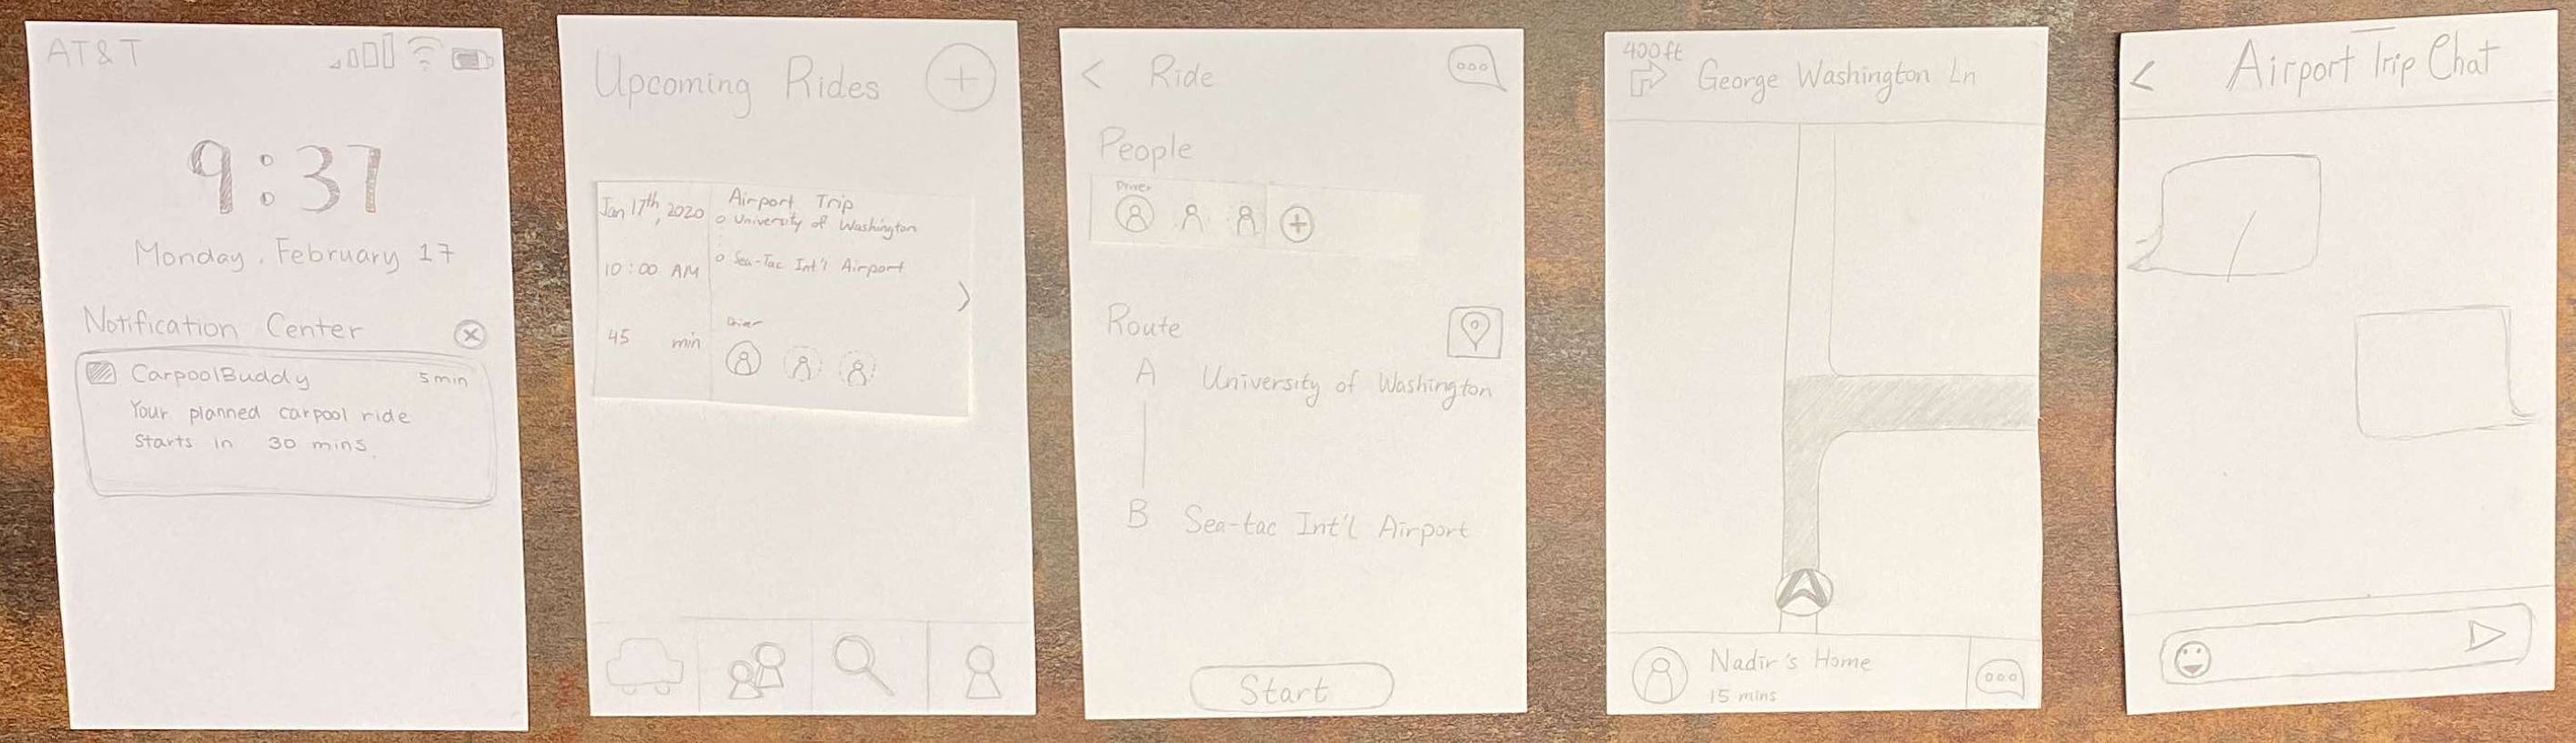 AT&T
9:37
Monday, February 17
Notification Center
CarpoolBuddy 5 min
Your planned carpool ride
starts in 30 mins.
Upcoming Rides
Jan 17th, 2020
10:00 AM
45 min
Airport Trip
University of Washington
Sea-Tac Int'l Airport
Driver
< Ride
People
Driver
Route
A University of Washington
B Sea-tac Int'l Airport
Start
400 ft
George Washington Ln
Nadir's Home
15 mins
< Airport Trip Chat